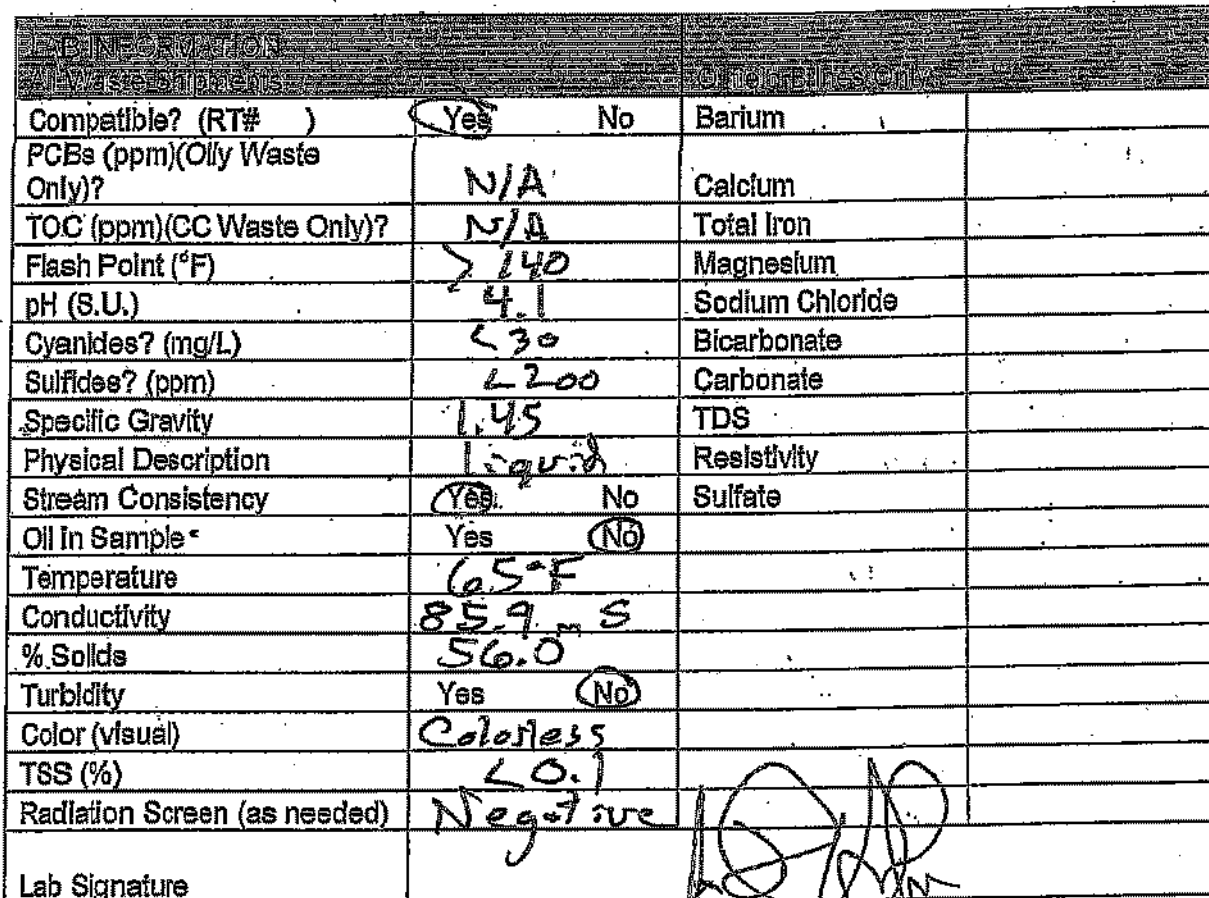 LAB INFORMATION
All Waste Shipments
Compatible? (RT# ) Yes No Barium
PCBs (ppm)(Oily Waste
Only)? N/A Calcium
TOC (ppm)(CC Waste Only)? N/A Total Iron
Flash Point (°F) > 140 Magnesium
pH (S.U.) 4.1 Sodium Chloride
Cyanides? (mg/L) <30 Bicarbonate
Sulfides? (ppm) <200 Carbonate
Specific Gravity 1.45 TDS
Physical Description Liquid Resistivity
Stream Consistency Yes No Sulfate
Oil in Sample Yes No
Temperature 65°F
Conductivity 85.9 mS
% Solids 56.0
Turbidity Yes No
Color (visual) Colorless
TSS (%) <0.1
Radiation Screen (as needed) Negative
Lab Signature